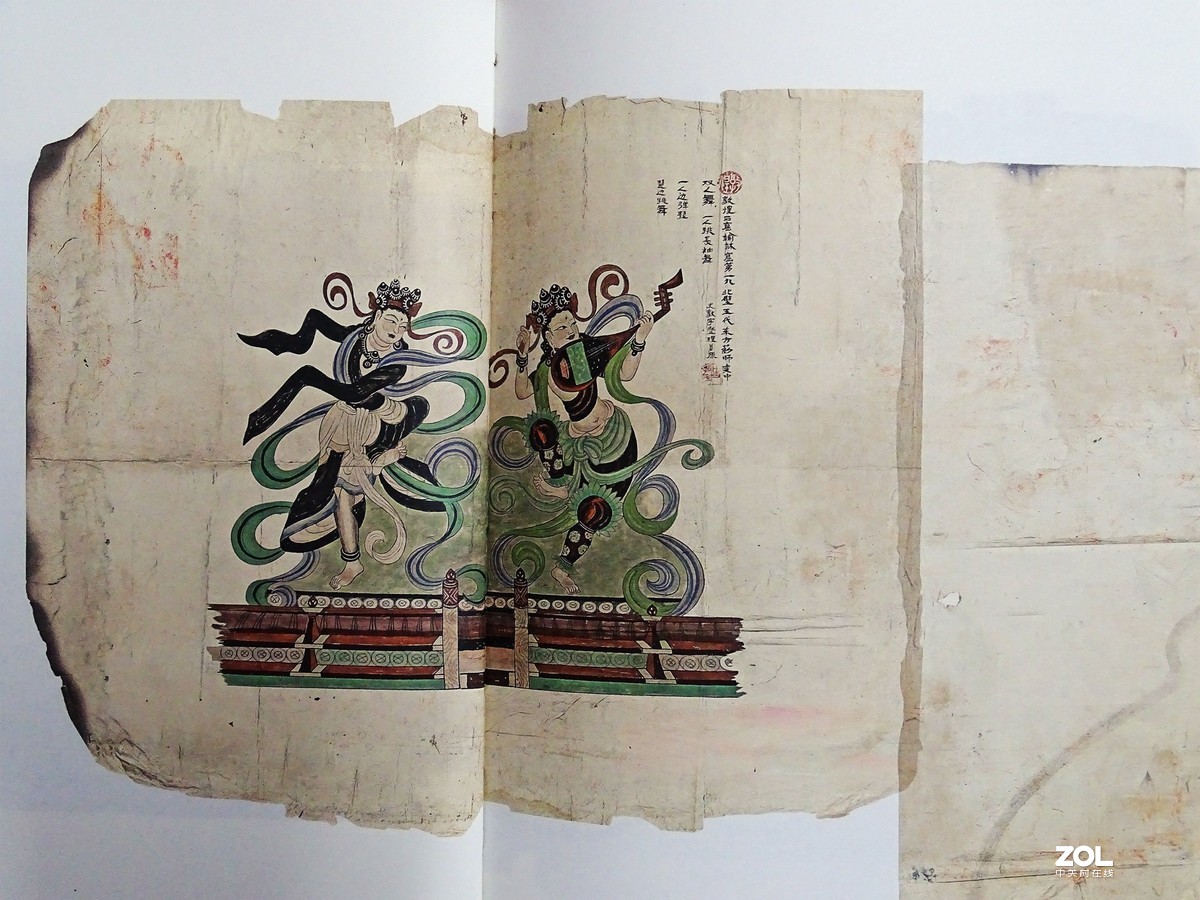 敦煌石窟榆林窟第一九北壁五代东方药师变中
双人舞 一人跳长袖舞
一人边弹琵
琶边跳舞
ZOL
中关村在线